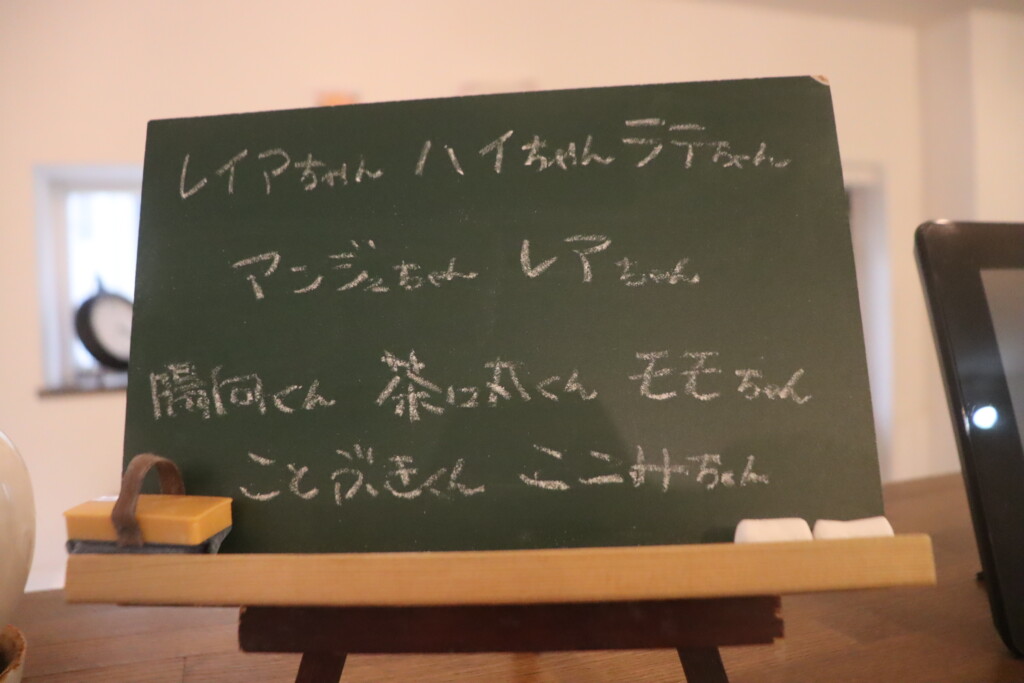 レイアちゃん ハイちゃん ラテちゃん
アンジェちゃん レアちゃん
陽向くん 茶々丸くん モモちゃん
ことぶきくん ちゃん